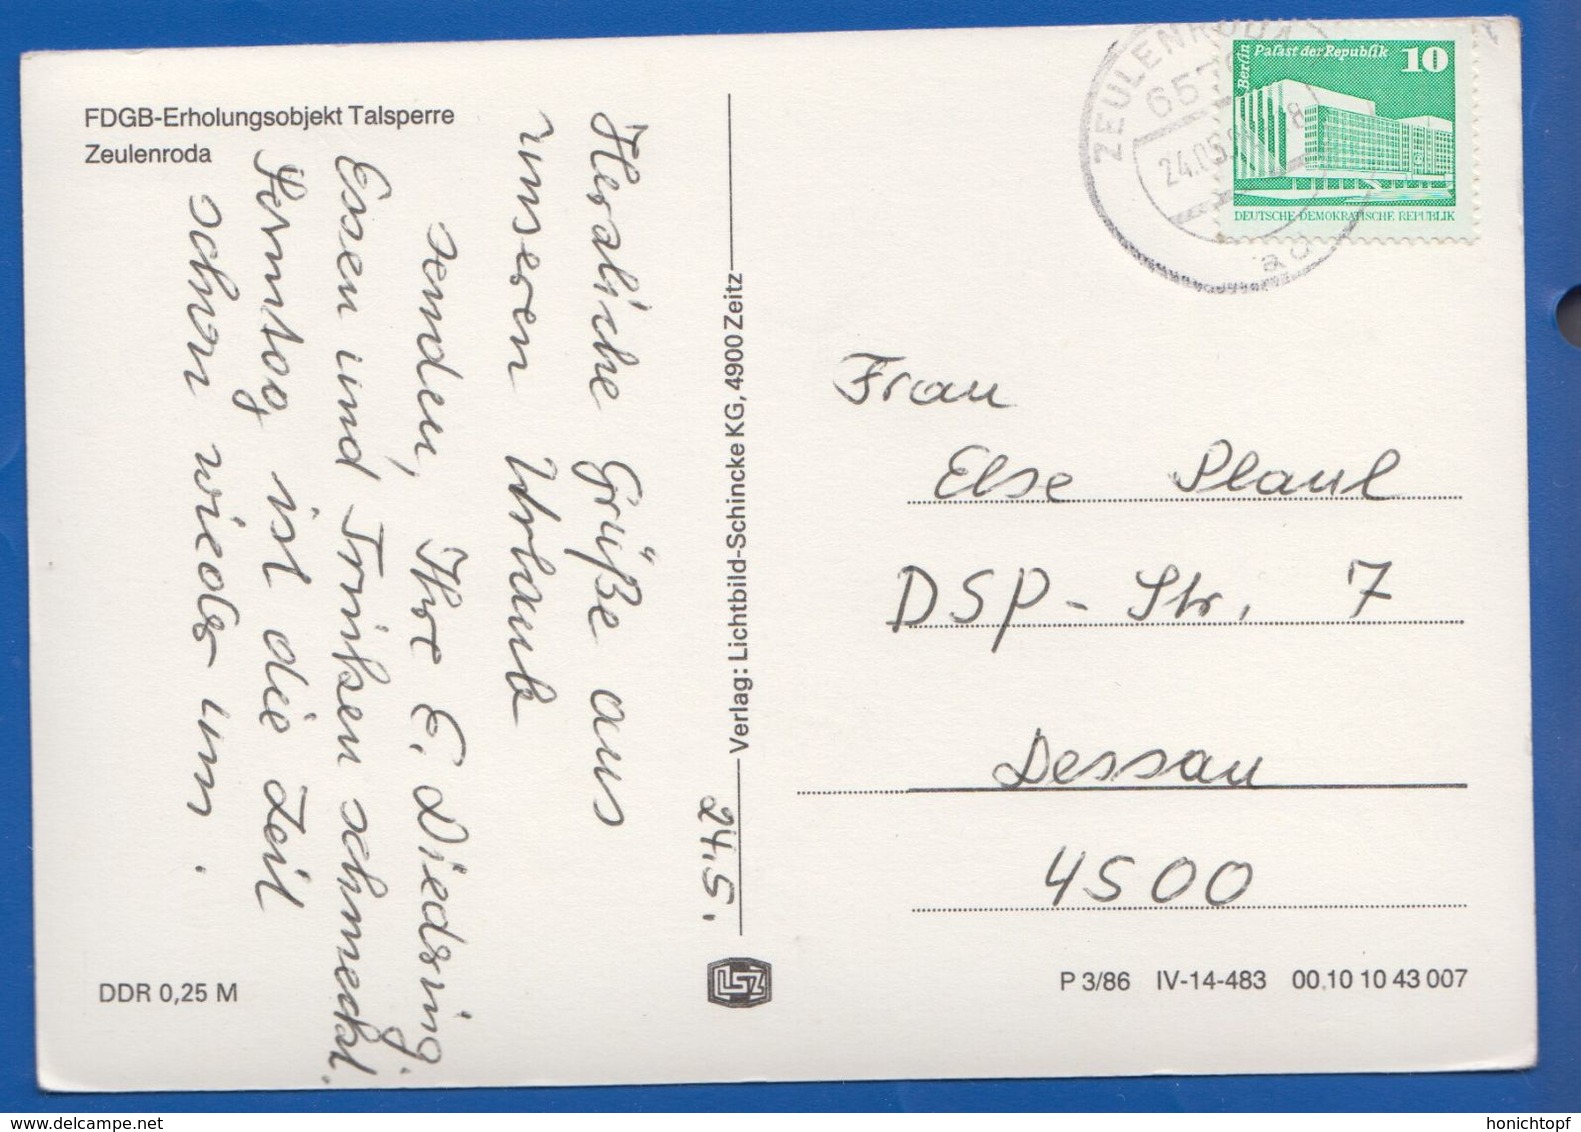 FDGB-Erholungsobjekt Talsperre
Zeulenroda
Herzliche Grüße aus
unserem Urlaub
senden, Ihre E. Diedring.
Essen und Trinken schmeckt.
Sonntag ist die Zeit
schon wieder um.
24.5.
Verlag: Lichtbild-Schincke KG, 4900 Zeitz
LSZ
DDR 0,25 M
ZEULENRODA
24.05.
Berlin
Palast der Republik
10
DEUTSCHE DEMOKRATISCHE REPUBLIK
Frau
Else Plaul
DSP-Str. 7
Dessau
4500
P 3/86 IV-14-483 00 10 10 43 007
www.delcampe.net
honichtopf